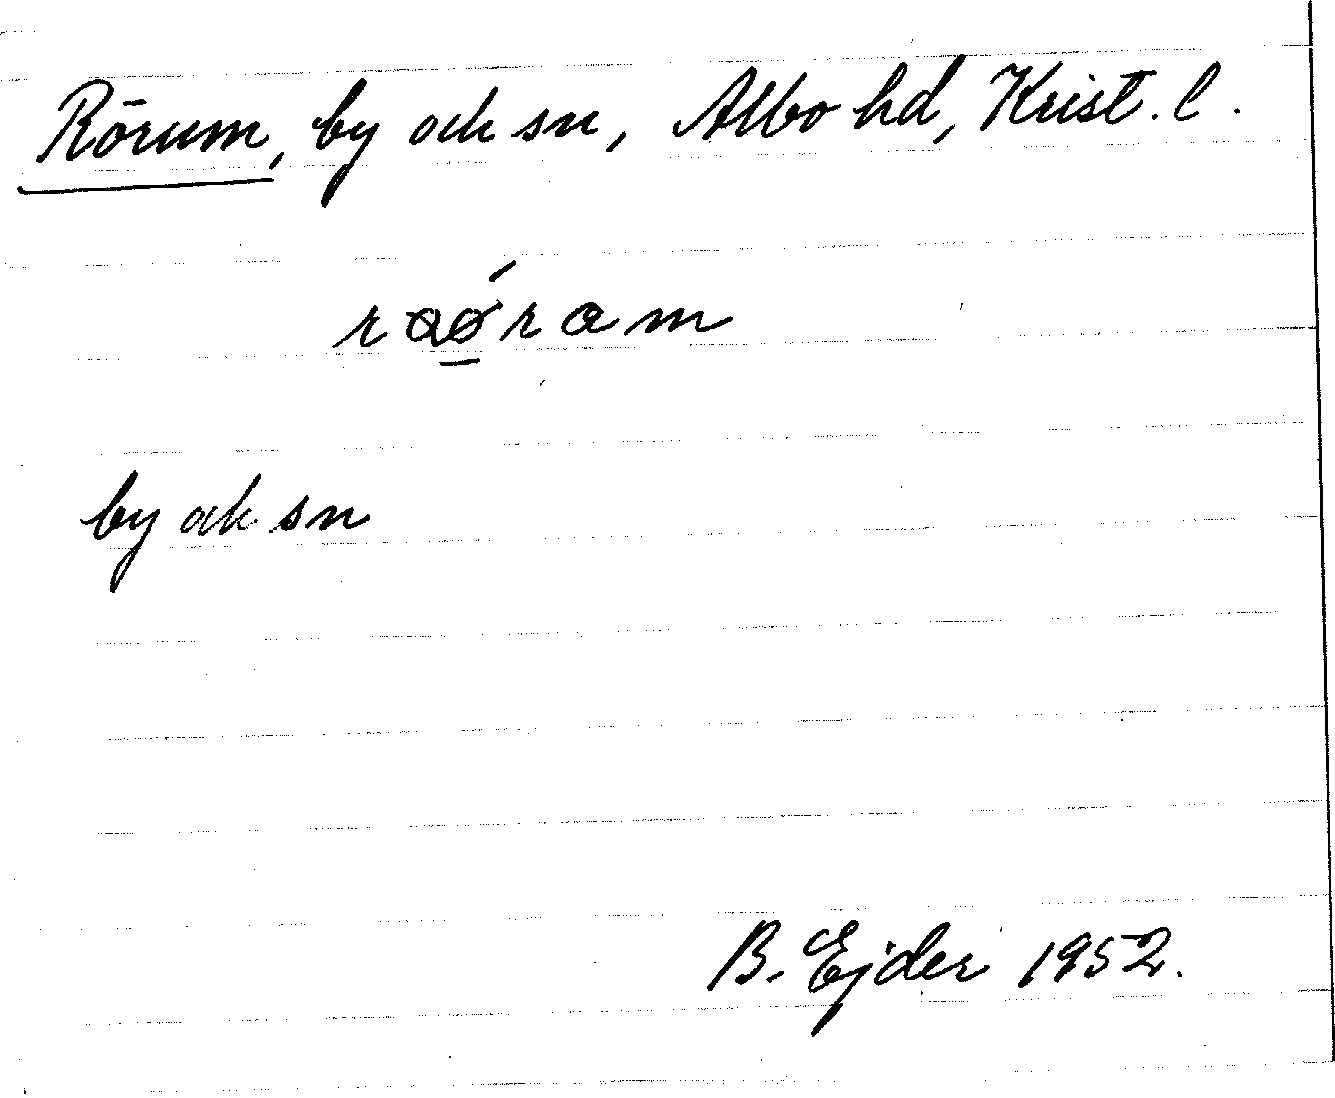 Rörum, by och sn, Albo hd, Krist. l.
raǿ̱ram
by och sn
B. Ejder 1952.